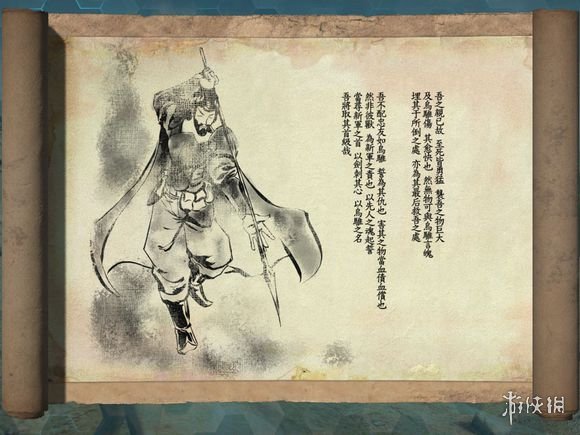 吾之親已故 至死皆勇猛 襲吾之物巨大
及烏騅傷 其愈快也 然無物可與烏騅言魄
埋其于所倒之處 亦為其最后救吾之處
吾不配忠友如烏騅 誓為其仇也 害其之物當血債血償也
然非彼獸 為新軍之責也 以先人之魂起誓
當尋新軍之首 以劍刺其心 以烏騅之名
吾將取其首級哉
游侠網